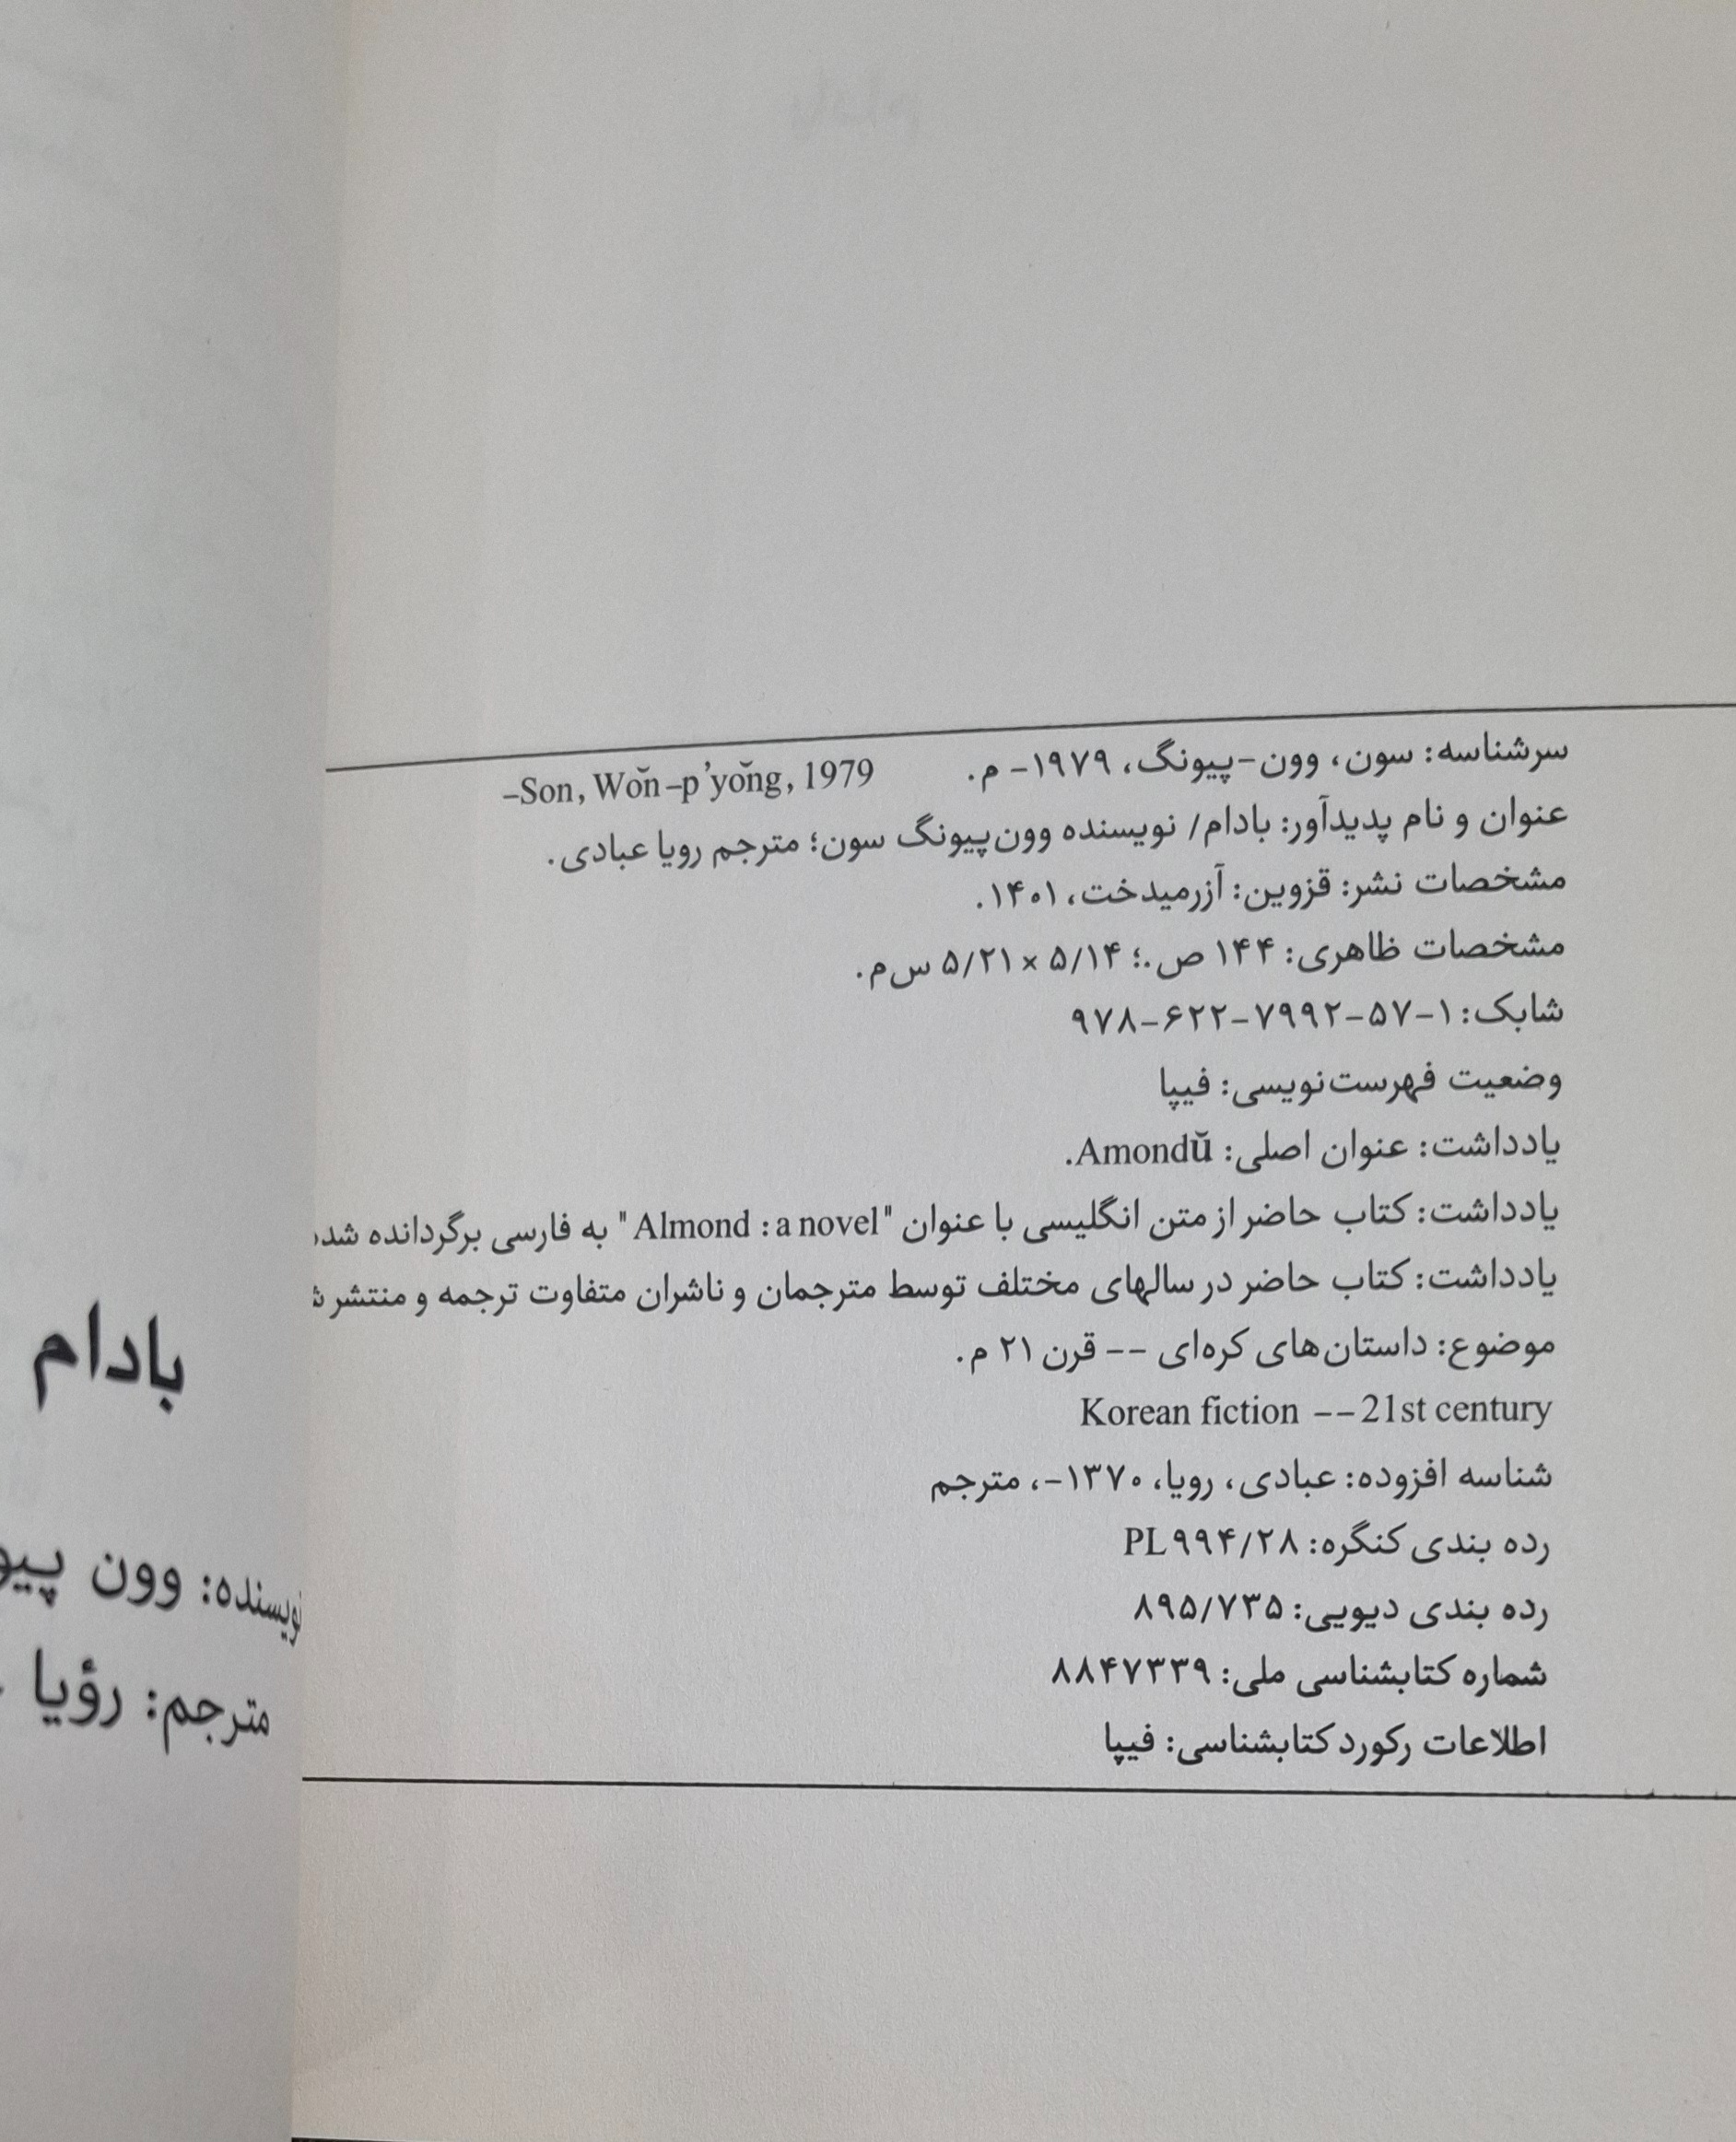 سرشناسه: سون، وون-پیونگ، ۱۹۷۹- م. Son, Wŏn-p'yŏng, 1979-
عنوان و نام پدیدآور: بادام/ نویسنده وون‌پیونگ سون؛ مترجم رویا عبادی.
مشخصات نشر: قزوین: آزرمیدخت، ۱۴۰۱.
مشخصات ظاهری: ۱۴۴ ص.؛ ۵/۱۴ × ۵/۲۱ س‌م.
شابک: ۱-۵۷-۷۹۹۲-۶۲۲-۹۷۸
وضعیت فهرست‌نویسی: فیپا
یادداشت: عنوان اصلی: Amondŭ.
یادداشت: کتاب حاضر از متن انگلیسی با عنوان "Almond : a novel" به فارسی برگردانده
یادداشت: کتاب حاضر در سالهای مختلف توسط مترجمان و ناشران متفاوت ترجمه و منتشر
موضوع: داستان‌های کره‌ای -- قرن ۲۱ م.
Korean fiction -- 21st century
شناسه افزوده: عبادی، رویا، ۱۳۷۰-، مترجم
رده بندی کنگره: PL۹۹۴/۲۸
رده بندی دیویی: ۸۹۵/۷۳۵
شماره کتابشناسی ملی: ۸۸۴۷۳۳۹
اطلاعات رکورد کتابشناسی: فیپا
بادام
نویسنده: وون
مترجم: رؤیا